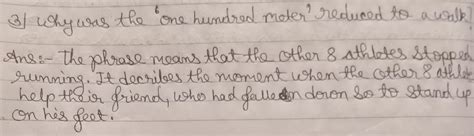 3) Why was the 'one hundred meter' reduced to a walk?
Ans:- The phrase means that the other 8 athlotes stopped
running. It decribes the moment when the other 8 athlet
help their friend, who had fallen down so to stand up
on his feet.